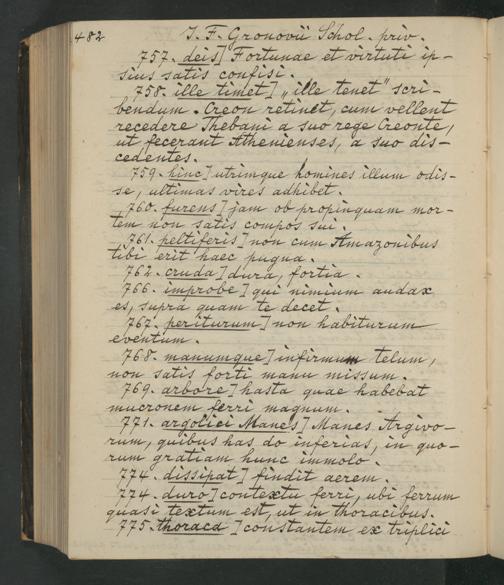 482 J. F. Gronovii Schol. priv.
757. deis] Fortunae et virtuti ip-
sius satis confisi.
758. ille timet] „ille tenet" scri-
bendum. Creon retinet, cum vellent
recedere Thebani a suo rege Creonte,
ut fecerant Athenienses, a suo dis-
cedentes.
759. hinc] utrinque homines illum odis-
se, ultimas vires adhibet.
760. furens] jam ob propinquam mor-
tem non satis compos sui.
761. peltiferis] non cum Amazonibus
tibi erit haec pugna.
762. cruda] dura, fortia.
766. improbe] qui nimium audax
es, supra quam te decet.
767. periturum] non habiturum
eventum.
768. manumque] infirmum telum,
non satis forti manu missum.
769. arbore] hasta quae habebat
mucronem ferri magnum.
771. argolici Manes] Manes Argivo-
rum, quibus has do inferias, in quo-
rum gratiam hunc immolo.
774. dissipat] findit aerem.
774. duro] contextu ferri, ubi ferrum
quasi textum est, ut in thoracibus.
775. thoraca] constantem ex triplici